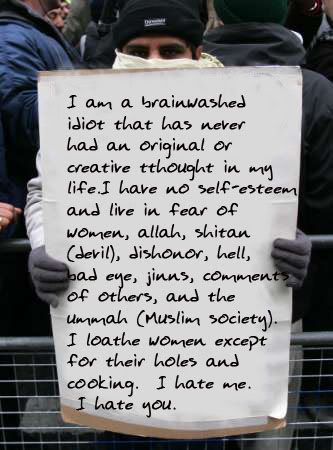 I am a brainwashed
idiot that has never
had an original or
creative tthought in my
life.I have no self-esteem
and live in fear of
women, allah, shitan
(devil), dishonor, hell,
bad eye, jinns, comments
of others, and the
ummah (Muslim society).
I loathe women except
for their holes and
cooking. I hate me.
I hate you.